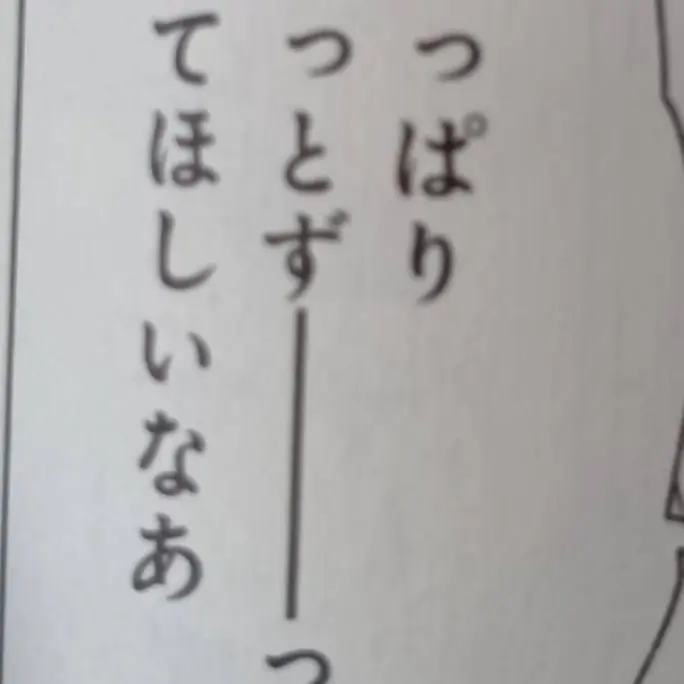 っぱり
っとず――っ
てほしいなあ